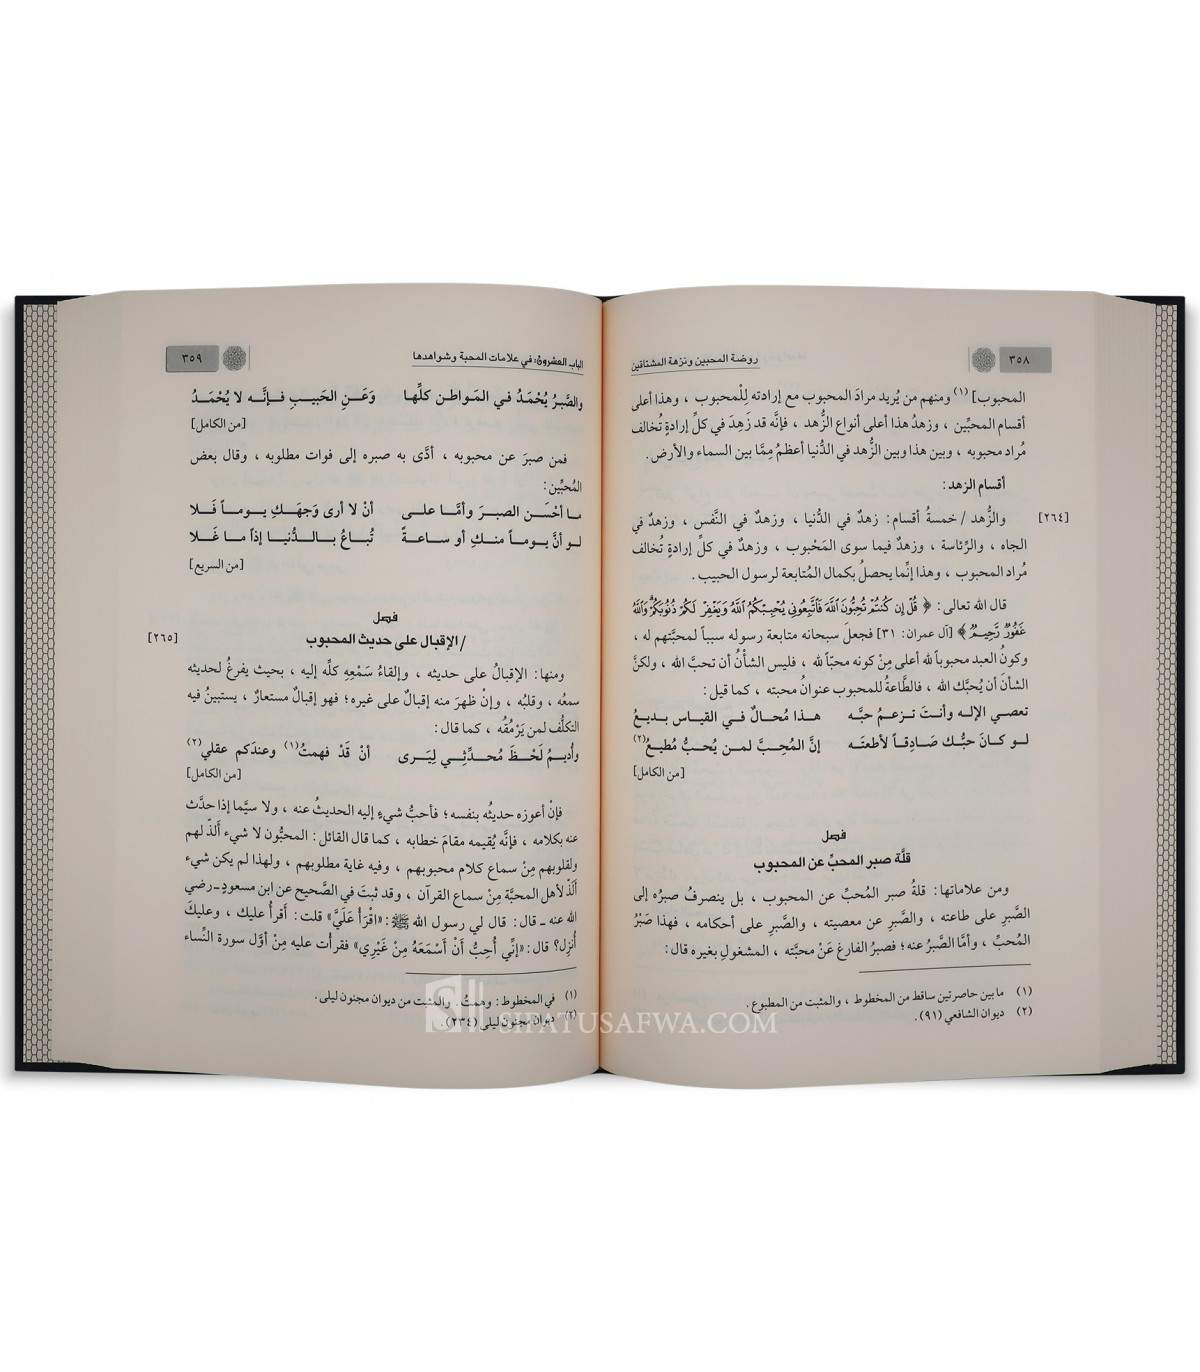 ٣٥٨
روضة المحبين ونزهة المشتاقين
المحبوب] (١) ومنهم من يُريد مرادَ المحبوب مع إرادته لِلْمحبوب ، وهذا أعلى
أقسام المحبِّين ، وزهدُ هذا أعلى أنواع الزُّهد ، فإنَّه قد زَهِدَ في كلِّ إرادةٍ تُخالف
مُراد محبوبه ، وبين هذا وبين الزُّهد في الدُّنيا أعظمُ مِمَّا بين السماء والأرض.
أقسام الزهد:
[٢٦٤] والزُّهد / خمسةُ أقسام: زهدٌ في الدُّنيا ، وزهدٌ في النَّفس ، وزهدٌ في
الجاه ، والرِّئاسة ، وزهدٌ فيما سوى المَحْبوب ، وزهدٌ في كلِّ إرادةٍ تُخالف
مُراد المحبوب ، وهذا إنِّما يحصلُ بكمال المُتابعة لرسول الحبيب.
قال الله تعالى: ﴿ قُلْ إِن كُنتُمْ تُحِبُّونَ ٱللَّهَ فَٱتَّبِعُونِي يُحْبِبْكُمُ ٱللَّهُ وَيَغْفِرْ لَكُمْ ذُنُوبَكُمْ وَٱللَّهُ
غَفُورٌ رَّحِيمٌ ﴾ [آل عمران: ٣١] فجعلَ سبحانه متابعة رسوله سبباً لمحبَّتهم له ،
وكونُ العبد محبوباً لله أعلى مِنْ كونه محبّاً لله ، فليس الشأنُ أن تحبَّ الله ، ولكنَّ
الشأنَ أن يُحبَّك الله ، فالطَّاعةُ للمحبوب عنوانُ محبته ، كما قيل:
تعصي الإله وأنتَ تزعمُ حبَّه هذا مُحالٌ في القياس بديعُ
لو كانَ حبُّك صَادِقاً لأطعتَه إنَّ المُحِبَّ لمن يُحبُّ مُطيعُ(٢)
[من الكامل]
فصل
قلَّة صبر المحبِّ عن المحبوب
ومن علاماتها: قلةُ صبر المُحبِّ عن المحبوب ، بل ينصرفُ صبرُه إلى
الصَّبرِ على طاعته ، والصَّبرِ عن معصيته ، والصَّبرِ على أحكامه ، فهذا صَبْرُ
المُحبِّ ، وأمَّا الصَّبرُ عنه؛ فصبرُ الفارغ عَنْ محبَّته ، المشغولِ بغيره قال:
(١) ما بين حاصرتين ساقط من المخطوط ، والمثبت من المطبوع.
(٢) ديوان الشافعي (٩١).
الباب العشرون: في علامات المحبة وشواهدها
٣٥٩
والصَّبرُ يُحْمَدُ في المَواطن كلِّها وَعَنِ الحَبيبِ فإنَّه لا يُحْمَدُ
[من الكامل]
فمن صبرَ عن محبوبه ، أدَّى به صبره إلى فوات مطلوبه ، وقال بعض
المُحبِّين:
ما أحْسَن الصبرَ وأمَّا على أنْ لا أرى وَجهَكِ يوماً فَلا
لو أنَّ يوماً منكِ أو ساعةً تُباعُ بالدُّنيا إذاً ما غَلا
[من السريع]
فصل
/ الإقبال على حديث المحبوب [٢٦٥]
ومنها: الإقبالُ على حديثه ، وإلقاءُ سَمْعِه كلِّه إليه ، بحيث يفرغُ لحديثه
سمعُه ، وقلبُه ، وإنْ ظهرَ منه إقبالٌ على غيره؛ فهو إقبالٌ مستعارٌ ، يستبينُ فيه
التكلُّف لمن يَرْمُقُه ، كما قال:
وأُديمُ لَحْظَ مُحدِّثِي لِيَرى أنْ قَدْ فهمتُ(١) وعندَكم عقلي(٢)
[من الكامل]
فإنْ أعوزه حديثُه بنفسه؛ فأحبُّ شيءٍ إليه الحديثُ عنه ، ولا سيَّما إذا حدَّث
عنه بكلامه ، فإنَّه يُقيمه مقامَ خطابه ، كما قال القائل: المحبُّون لا شيء ألذّ لهم
ولقلوبهم مِنْ سماع كلام محبوبهم ، وفيه غاية مطلوبهم ، ولهذا لم يكن شيء
ألَذّ لأهل المحبَّة مِنْ سماع القرآن ، وقد ثبتَ في الصَّحيح عن ابن مسعودٍ - رضي
الله عنه - قال: قال لي رسول الله ﷺ: «اقْرَأْ عَلَيَّ» قلت: أَقرأُ عليك ، وعليكَ
أُنزِل؟ قال: «إنِّي أُحِبُّ أَنْ أَسْمَعَهُ مِنْ غَيْرِي» فقرأت عليه مِنْ أوَّل سورة النِّساء
(١) في المخطوط: وهمتُ. والمثبت من ديوان مجنون ليلى.
(٢) ديوان مجنون ليلى (٢٣٤).
SIFATUSAFWA.COM